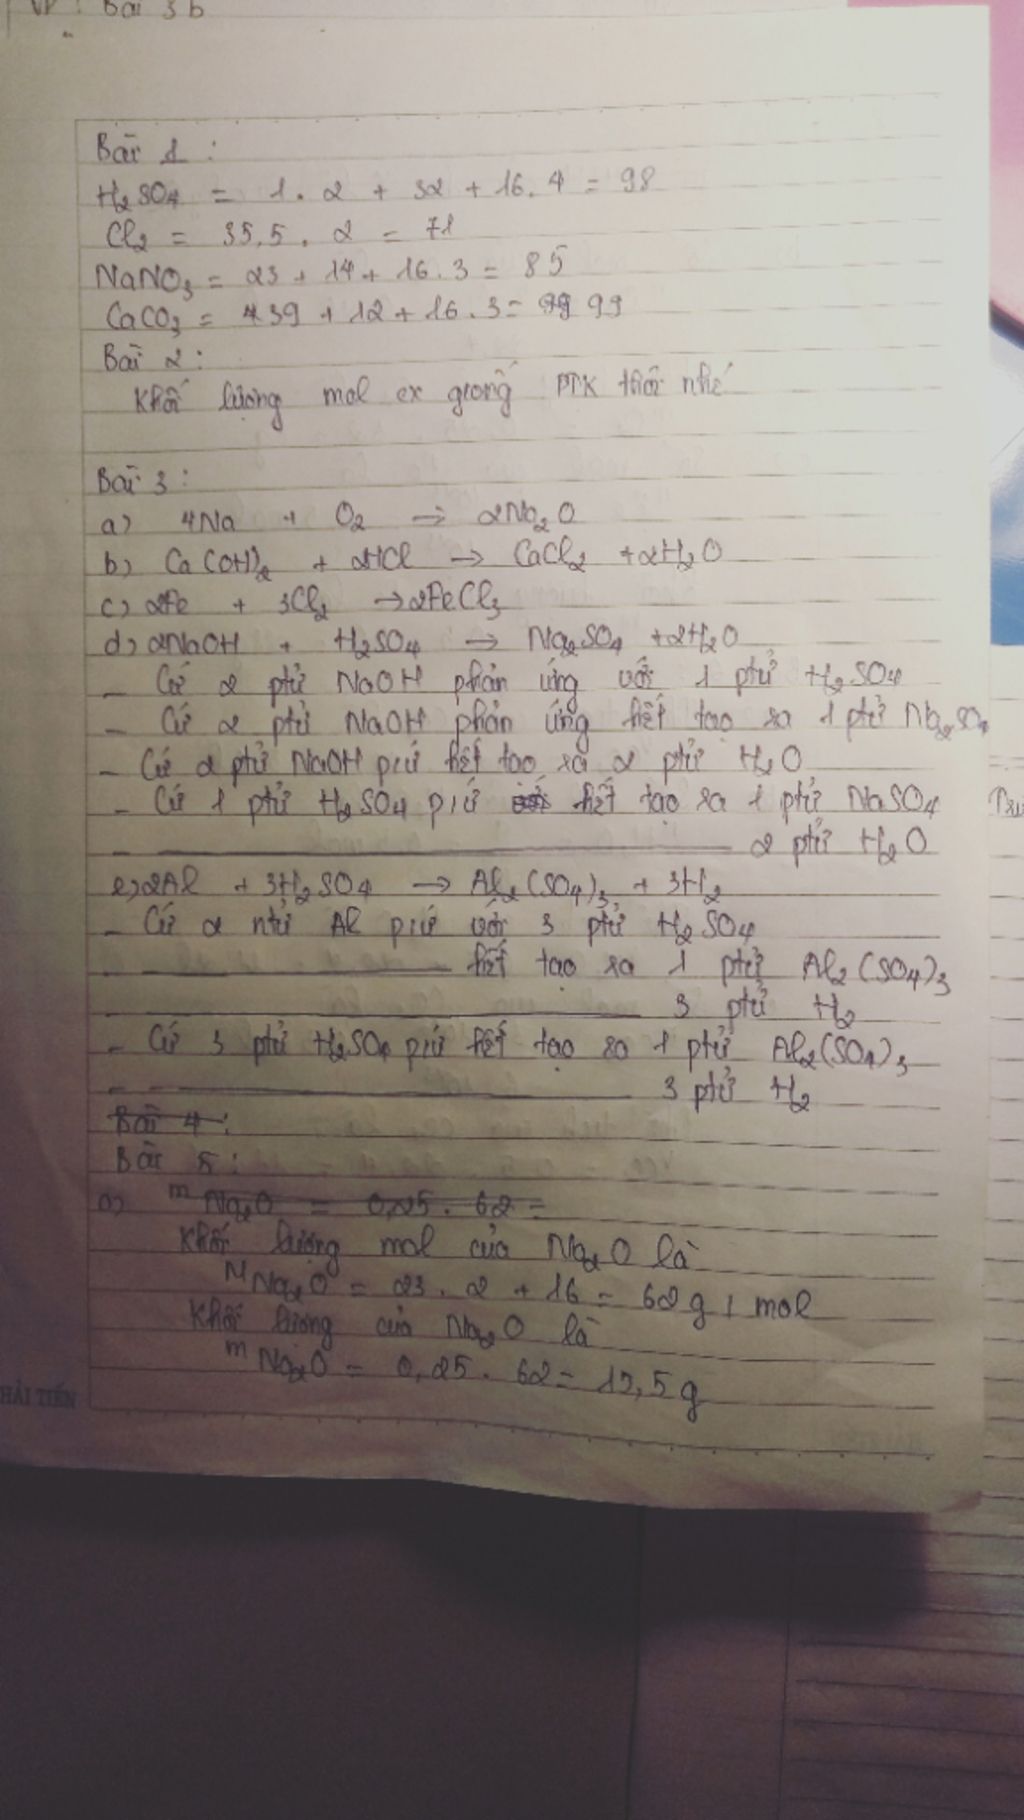 Bài 3b
Bài 1 :
H₂SO₄ = 1 . 2 + 32 + 16 . 4 = 98
Cl₂ = 35,5 . 2 = 71
NaNO₃ = 23 + 14 + 16 . 3 = 85
CaCO₃ = 39 + 12 + 16 . 3 = 99
Bài 2 :
Khối lượng mol giống PTK thôi nhé
Bài 3 :
a) 4Na + O₂ → 2Na₂O
b) Ca(OH)₂ + 2HCl → CaCl₂ + 2H₂O
c) 2Fe + 3Cl₂ → 2FeCl₃
d) 2NaOH + H₂SO₄ → Na₂SO₄ + 2H₂O
– Cứ 2 ptử NaOH phản ứng với 1 ptử H₂SO₄
– Cứ 2 ptử NaOH phản ứng hết tạo ra 1 ptử Na₂SO₄
– Cứ 2 ptử NaOH pứ hết tạo ra 2 ptử H₂O
– Cứ 1 ptử H₂SO₄ pứ hết tạo ra 1 ptử NaSO₄
– ——— 2 ptử H₂O
e) 2Al + 3H₂SO₄ → Al₂(SO₄)₃ + 3H₂
– Cứ 2 ntử Al pứ với 3 ptử H₂SO₄
– ——— hết tạo ra 1 ptử Al₂(SO₄)₃
– ——— 3 ptử H₂
– Cứ 3 ptử H₂SO₄ pứ hết tạo ra 1 ptử Al₂(SO₄)₃
– ——— 3 ptử H₂
Bài 4 :
Bài 5 :
a) mNa₂O = 0,25 . 62 =
Khối lượng mol của Na₂O là
MNa₂O = 23 . 2 + 16 = 62 g / mol
Khối lượng của Na₂O là
mNa₂O = 0,25 . 62 = 15,5 g
HẢI TIẾN